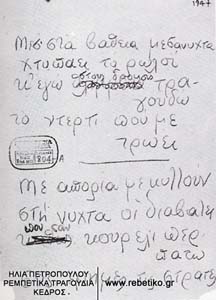 1947
Μεσ στα βαθεια μεσανυχτα
χτυπαει το ρολοι
κ' εγω στους δρομους
τρα-
γουδω
το ντερτι που με
τρωει
Με απορια με κυλουν
στη νυχτα οι διαβατε
που σαν
κουρελι περ
πατω
τισ στρατε
ΗΛΙΑ ΠΕΤΡΟΠΟΥΛΟΥ
ΡΕΜΠΕΤΙΚΑ ΤΡΑΓΟΥΔΙΑ
ΚΕΔΡΟΣ. www.rebetiko.gr